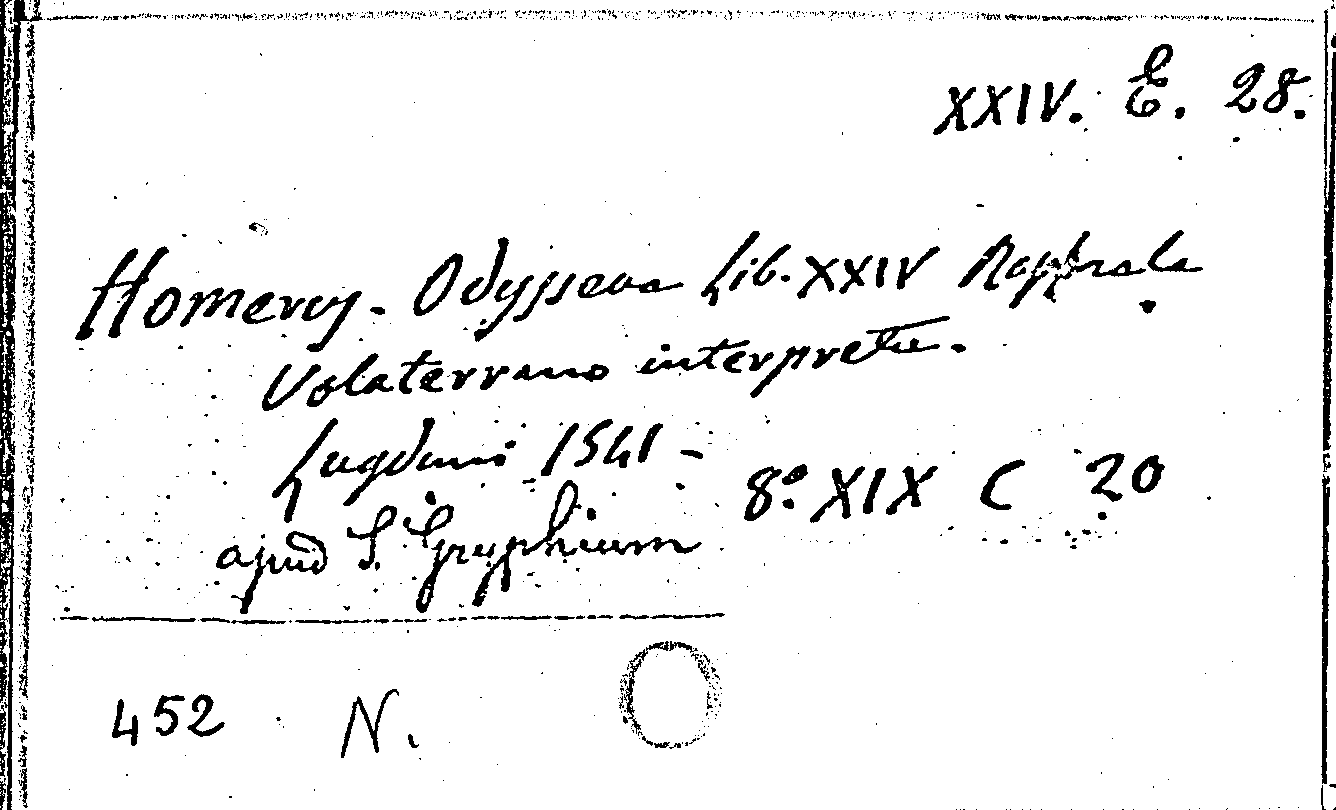 XXIV. E. 28.
Homerus - Odysseae Lib. XXIV Raphaele
Volaterrano interprete.
Lugduni 1541 -
8º. XIX C 20
apud S. Gryphium
452 N.